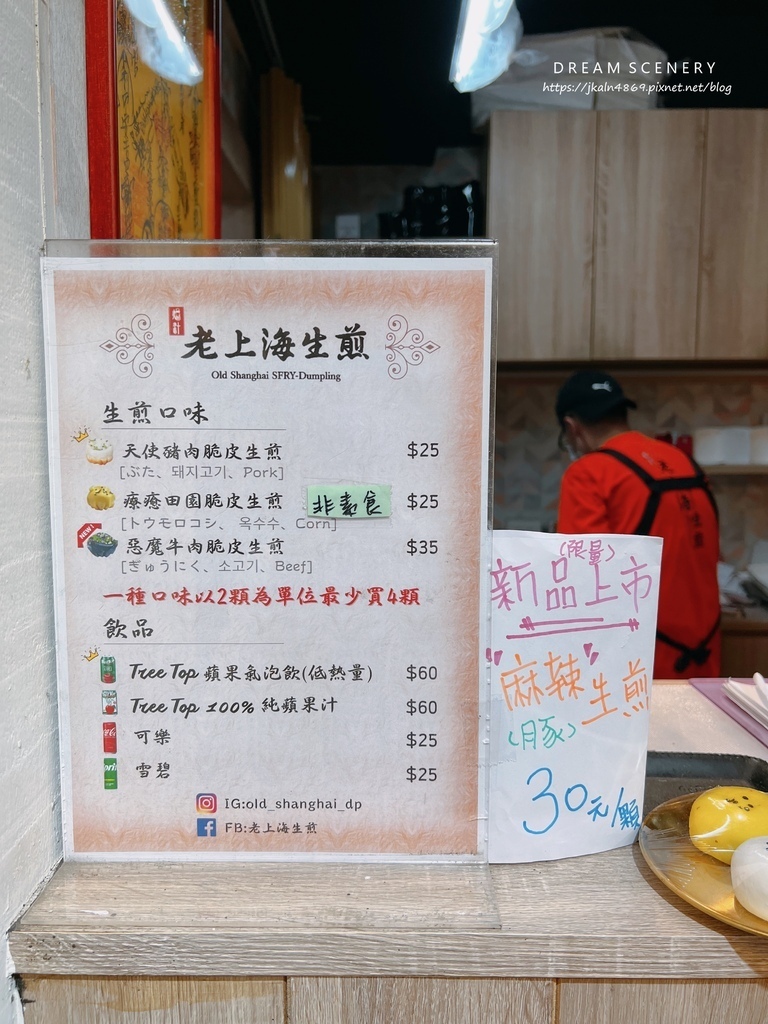 DREAM SCENERY
https://jkaln4869.pixnet.net/blog
老上海生煎
Old Shanghai SFRY-Dumpling
生煎口味
天使豬肉脆皮生煎 $25
[ぶた、돼지고기、Pork]
療癒田園脆皮生煎 非素食 $25
[トウモロコシ、 옥수수、Corn]
NEW!
惡魔牛肉脆皮生煎 $35
[ぎゅうにく、소고기、Beef]
一種口味以2顆為單位最少買4顆
飲品
Tree Top 蘋果氣泡飲(低熱量) $60
Tree Top 100% 純蘋果汁 $60
可樂 $25
雪碧 $25
IG:old_shanghai_dp
FB:老上海生煎
(限量)
新品上市
"麻辣"生煎
(月豖)
30元/顆